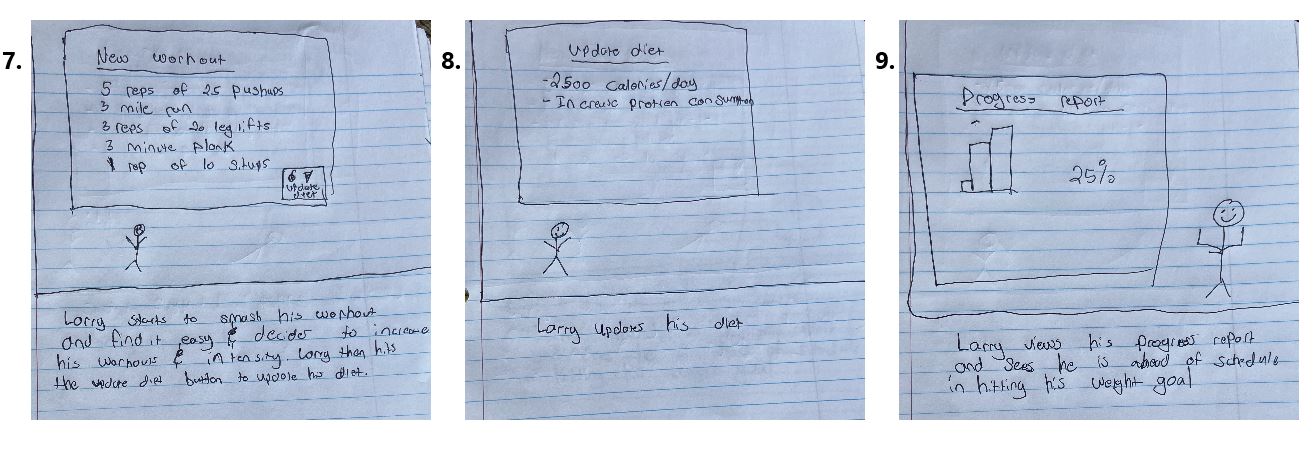 7.
New workout
5 reps of 25 pushups
3 mile run
3 reps of 20 leg lifts
3 minute plank
1 rep of 10 situps
update
diet
Larry starts to smash his workout
and find it easy & decides to increase
his workouts & intensity. Larry than hits
the update diet button to update his diet.
8.
Update diet
-2500 calories/day
- Increase protien consumption
Larry updates his diet
9.
Progress report
25%
Larry views his progress report
and sees he is ahead of schedule
in hitting his weight goal